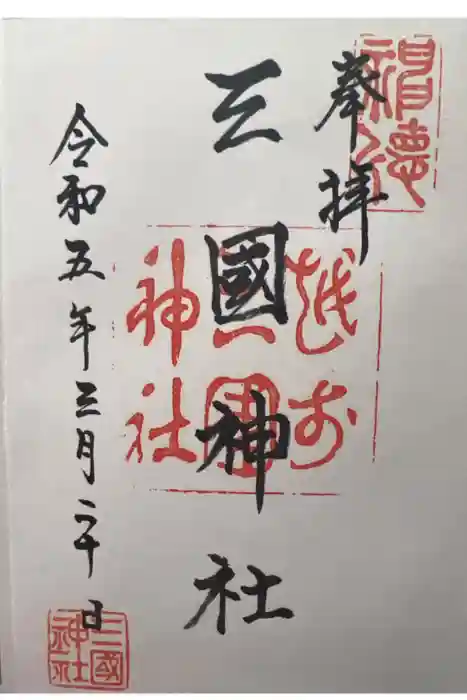 奉拝
三國神社
令和五年三月二十日
越前
三國
神社
三國
神社